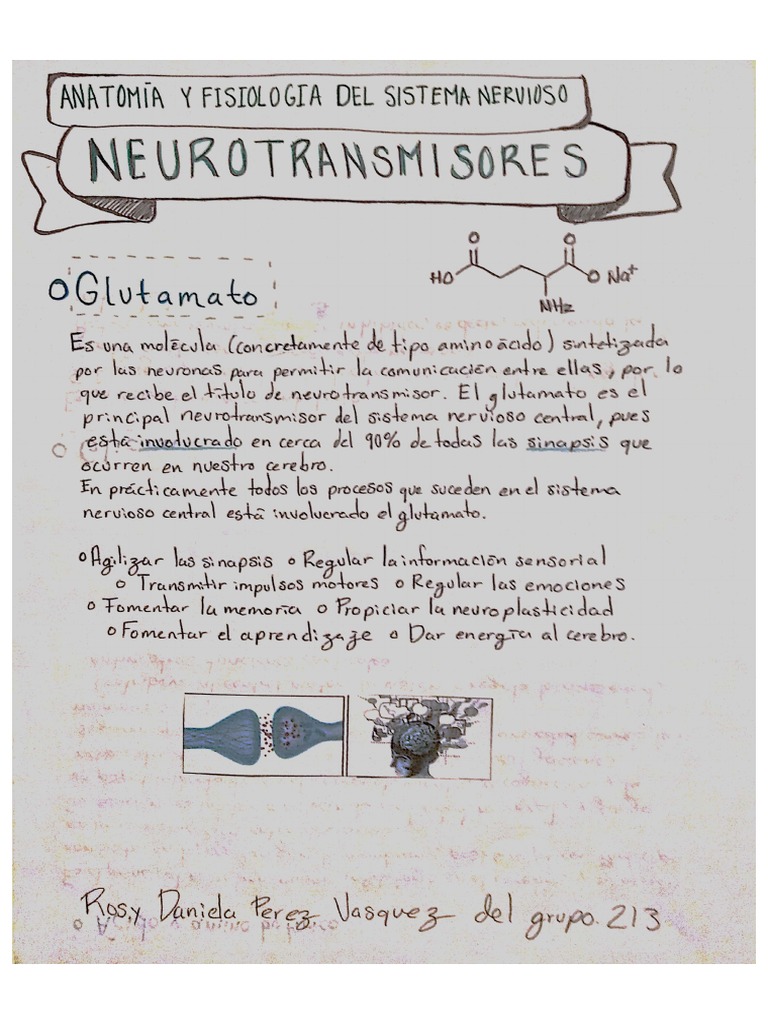 ANATOMÍA Y FISIOLOGIA DEL SISTEMA NERVIOSO
NEUROTRANSMISORES
O O
HO O Na+
NH2
Glutamato
Es una molécula (concretamente de tipo aminoácido) sintetizada
por las neuronas para permitir la comunicación entre ellas, por lo
que recibe el título de neurotransmisor. El glutamato es el
principal neurotransmisor del sistema nervioso central, pues
está involucrado en cerca del 90% de todas las sinapsis que
ocurren en nuestro cerebro.
En prácticamente todos los procesos que suceden en el sistema
nervioso central está involucrado el glutamato.
o Agilizar las sinapsis o Regular la información sensorial
o Transmitir impulsos motores o Regular las emociones
o Fomentar la memoria o Propiciar la neuroplasticidad
o Fomentar el aprendizaje o Dar energía al cerebro.
Rosy Daniela Perez Vasquez del grupo. 213